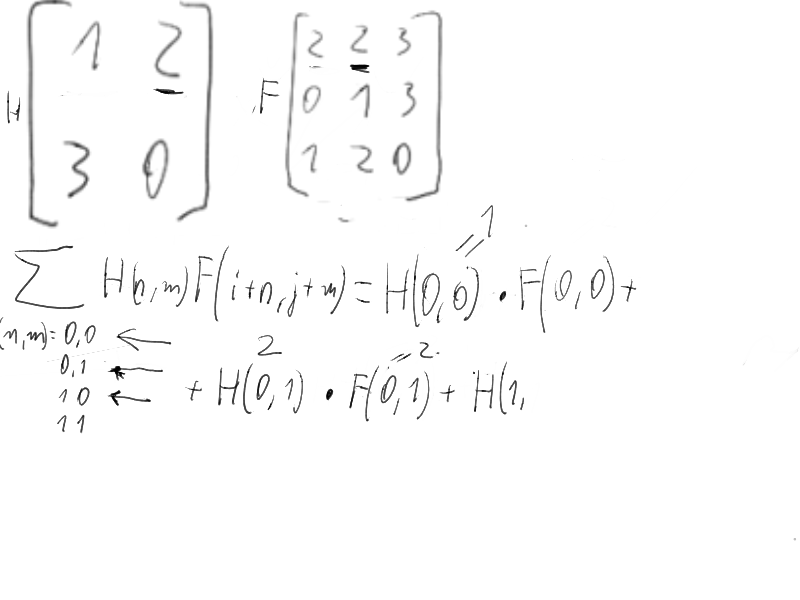 H [1 2
3 0]
F [2 2 3
0 1 3
1 2 0]
1
∑ H(n,m)F(i+n,j+m) = H(0,0) · F(0,0) +
(n,m)= 0,0 ←
2 = 2
0,1 ←
+ H(0,1) · F(0,1) + H(1,
1 0 ←
1 1